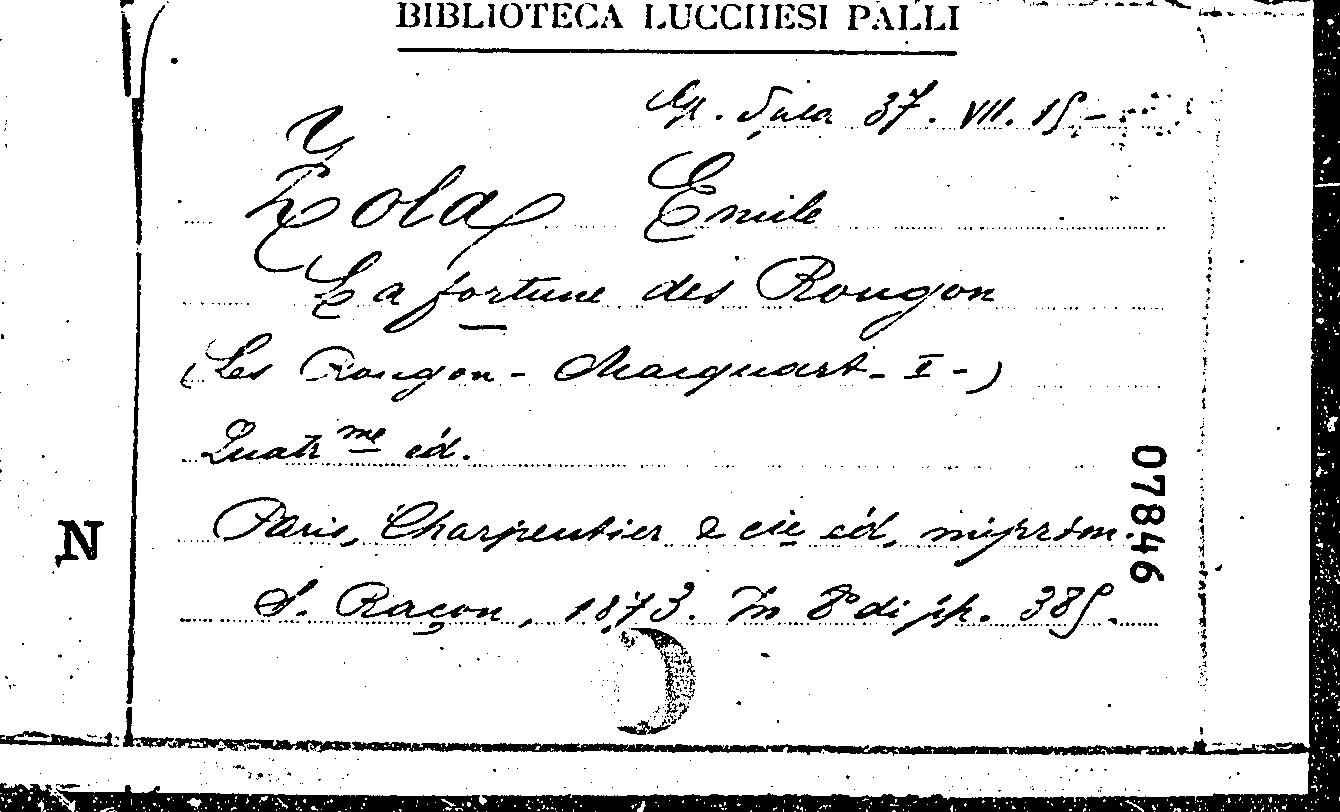 BIBLIOTECA LUCCHESI PALLI
Sala 37. VII. 15 -
Zola Emile
La fortune des Rougon
(Les Rougon - Macquart - I -)
Quatr me éd.
Paris, Charpentier & cie éd,
07846
N
S. Raçon, 1873. In 8° di pp. 385.